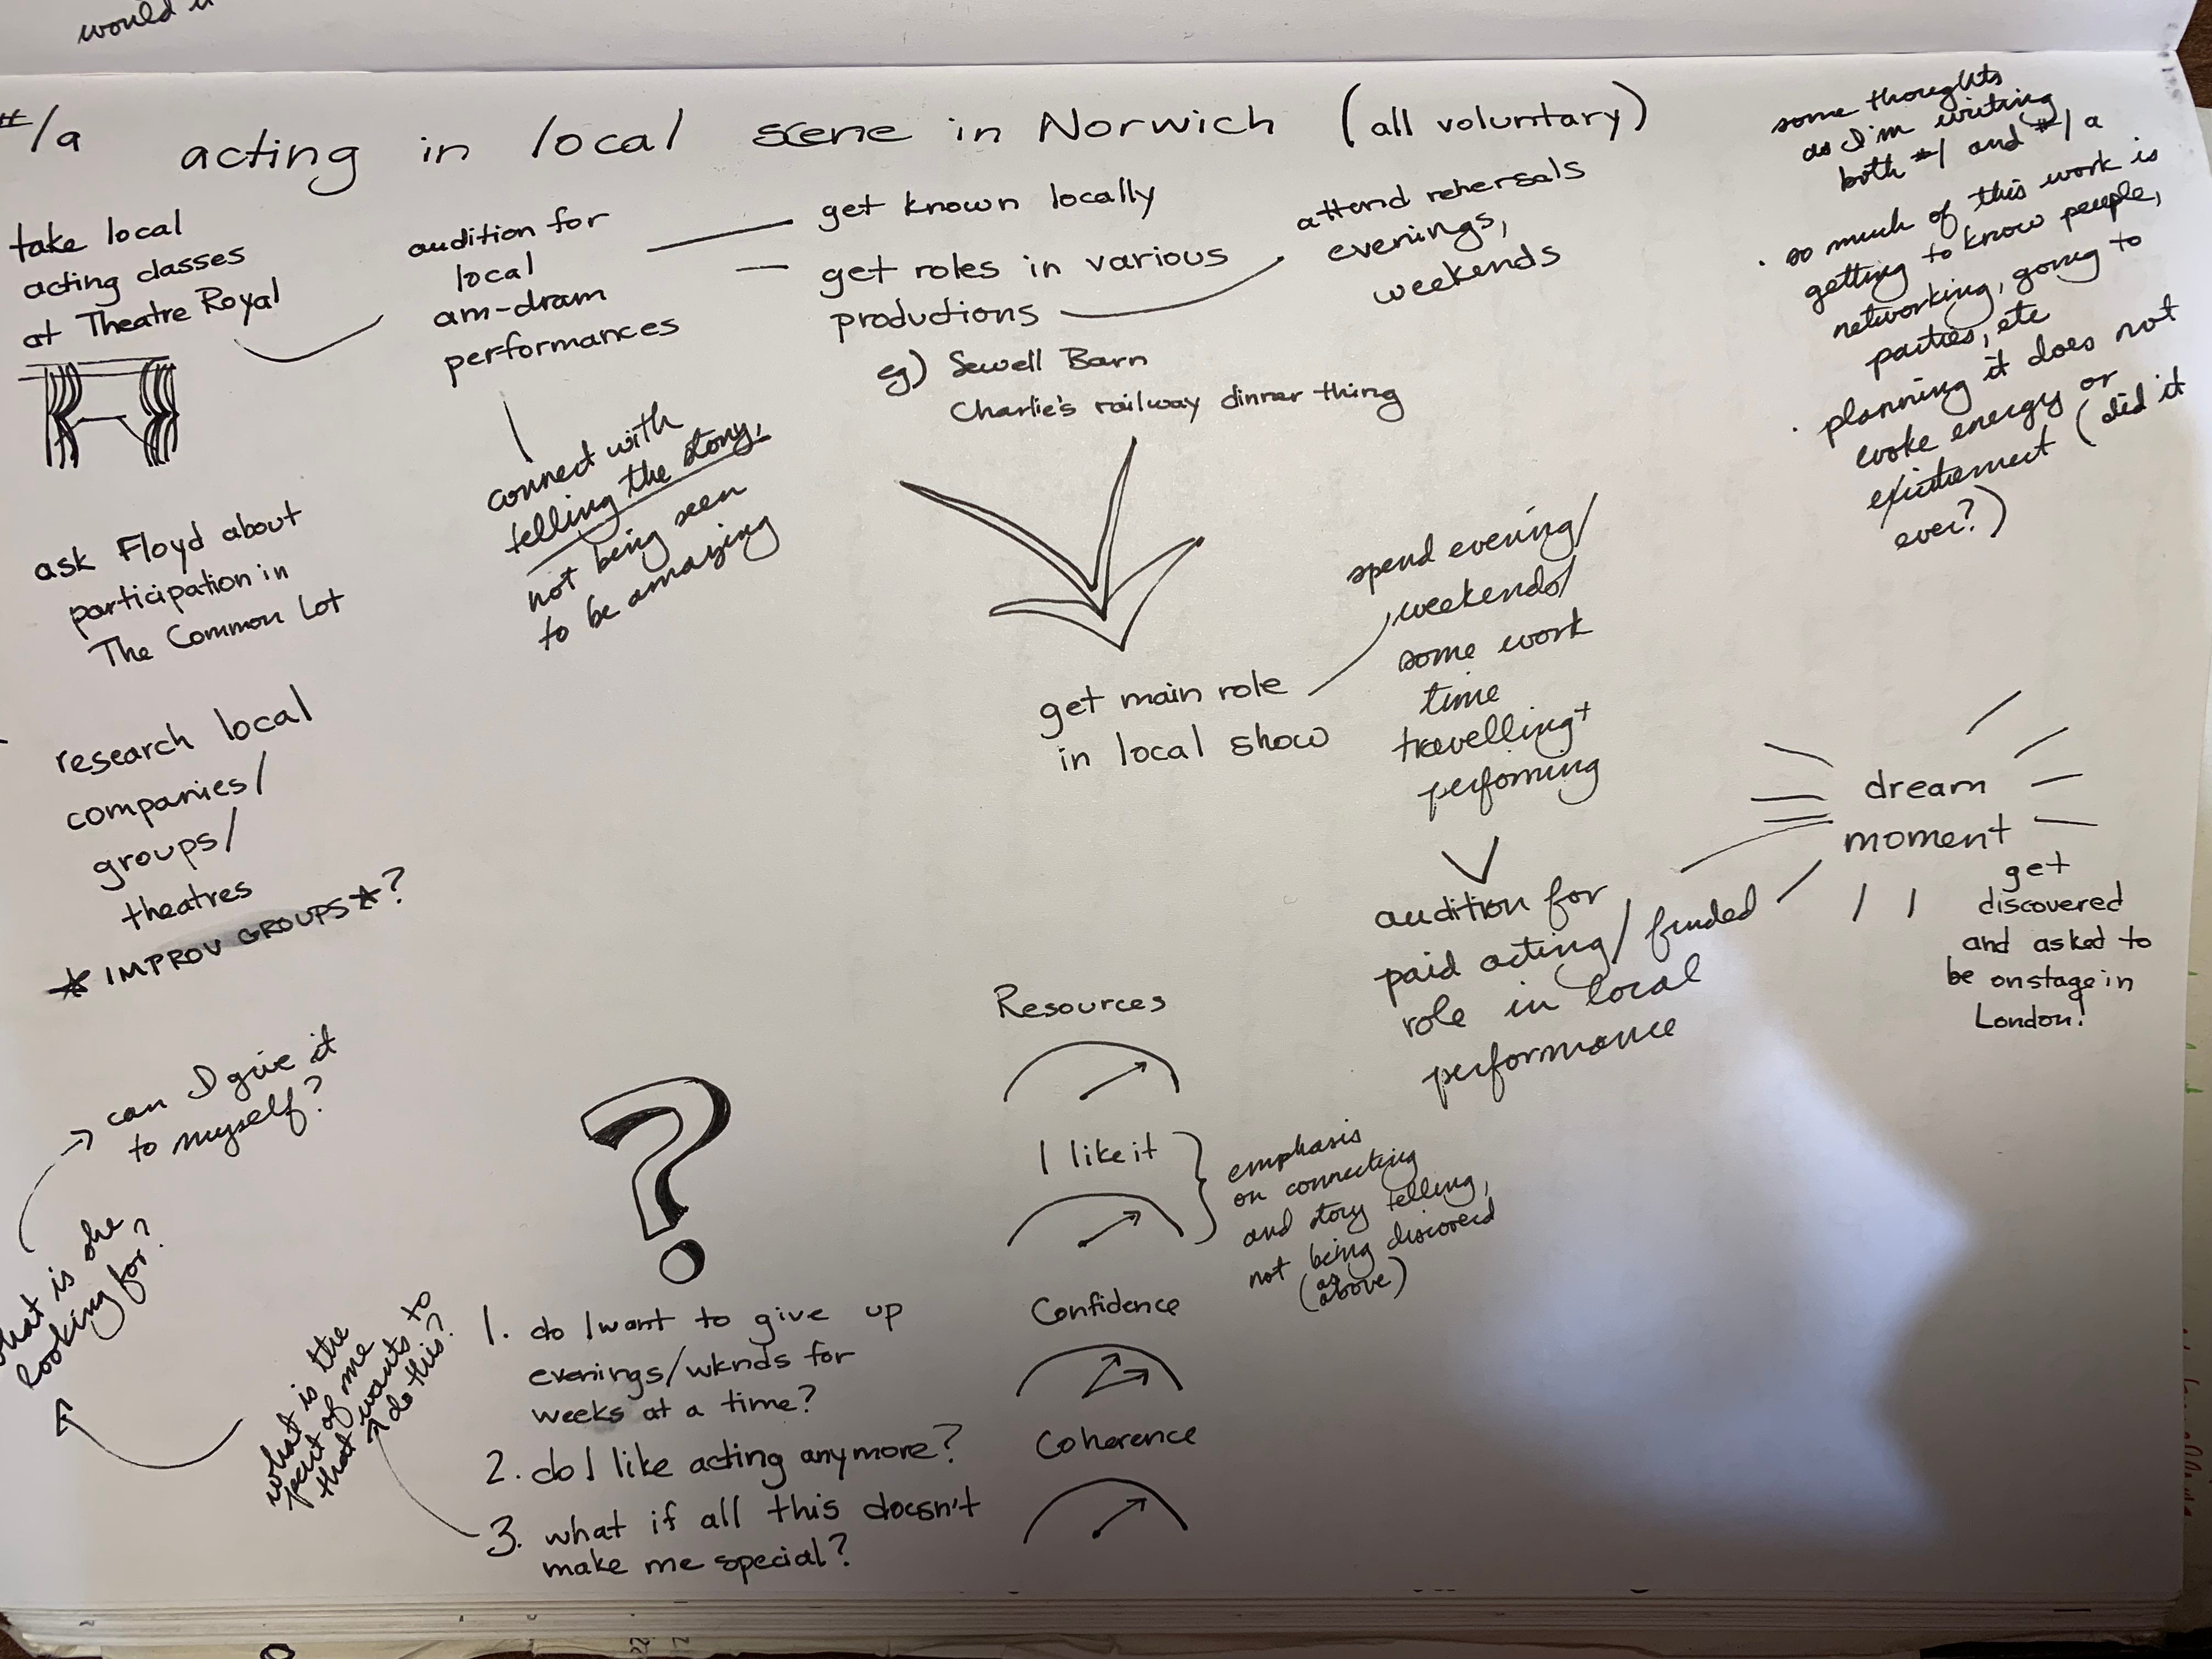 would
#1a
acting in local scene in Norwich (all voluntary)
take local
acting classes
at Theatre Royal
audition for
local
am-dram
performances
get known locally
get roles in various
productions
eg) Sewell Barn
Charlie's railway dinner thing
attend rehersals
evenings,
weekends
some thoughts
as I'm writing
both #1 and #1a
· so much of this work is
getting to know people,
networking, going to
parties, etc
· planning it does not
evoke energy or
existement (did it
ever?)
connect with
telling the story,
not being seen
to be amazing
ask Floyd about
participation in
The Common Lot
research local
companies/
groups/
theatres
* IMPROV GROUPS *?
get main role
in local show
spend evening/
weekends/
some work
time
travelling +
perfoming
audition for
paid acting/funded
role in local
performance
dream
moment
get
discovered
and asked to
be onstage in
London!
can I give it
to myself?
what is she
looking for?
what is the
part of me
that wants to
do this?
?
1. do I want to give up
evenings/wknds for
weeks at a time?
2. do I like acting anymore?
3. what if all this doesn't
make me special?
Resources
I like it
emphasis
on connecting
and story telling,
not being discovered
(as
above)
Confidence
Coherence